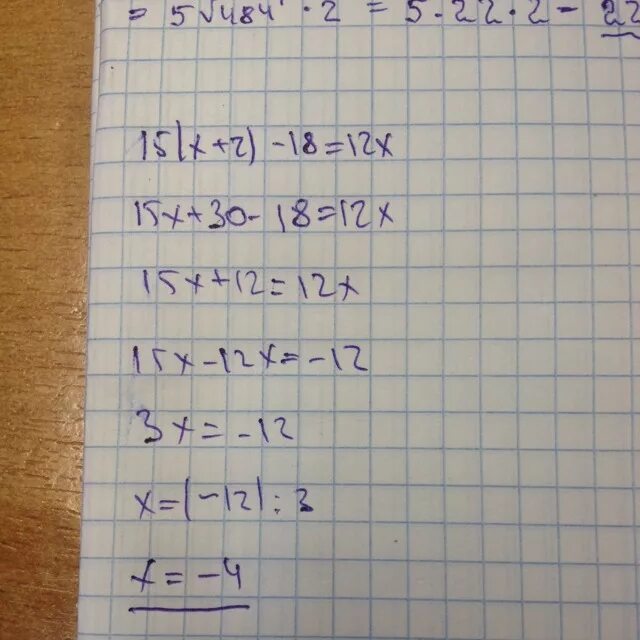 = 5√484 · 2 = 5 · 22 · 2 = 22
15(x+2) - 18 = 12x
15x + 30 - 18 = 12x
15x + 12 = 12x
15x - 12x = -12
3x = -12
x = (-12) : 3
x = -4